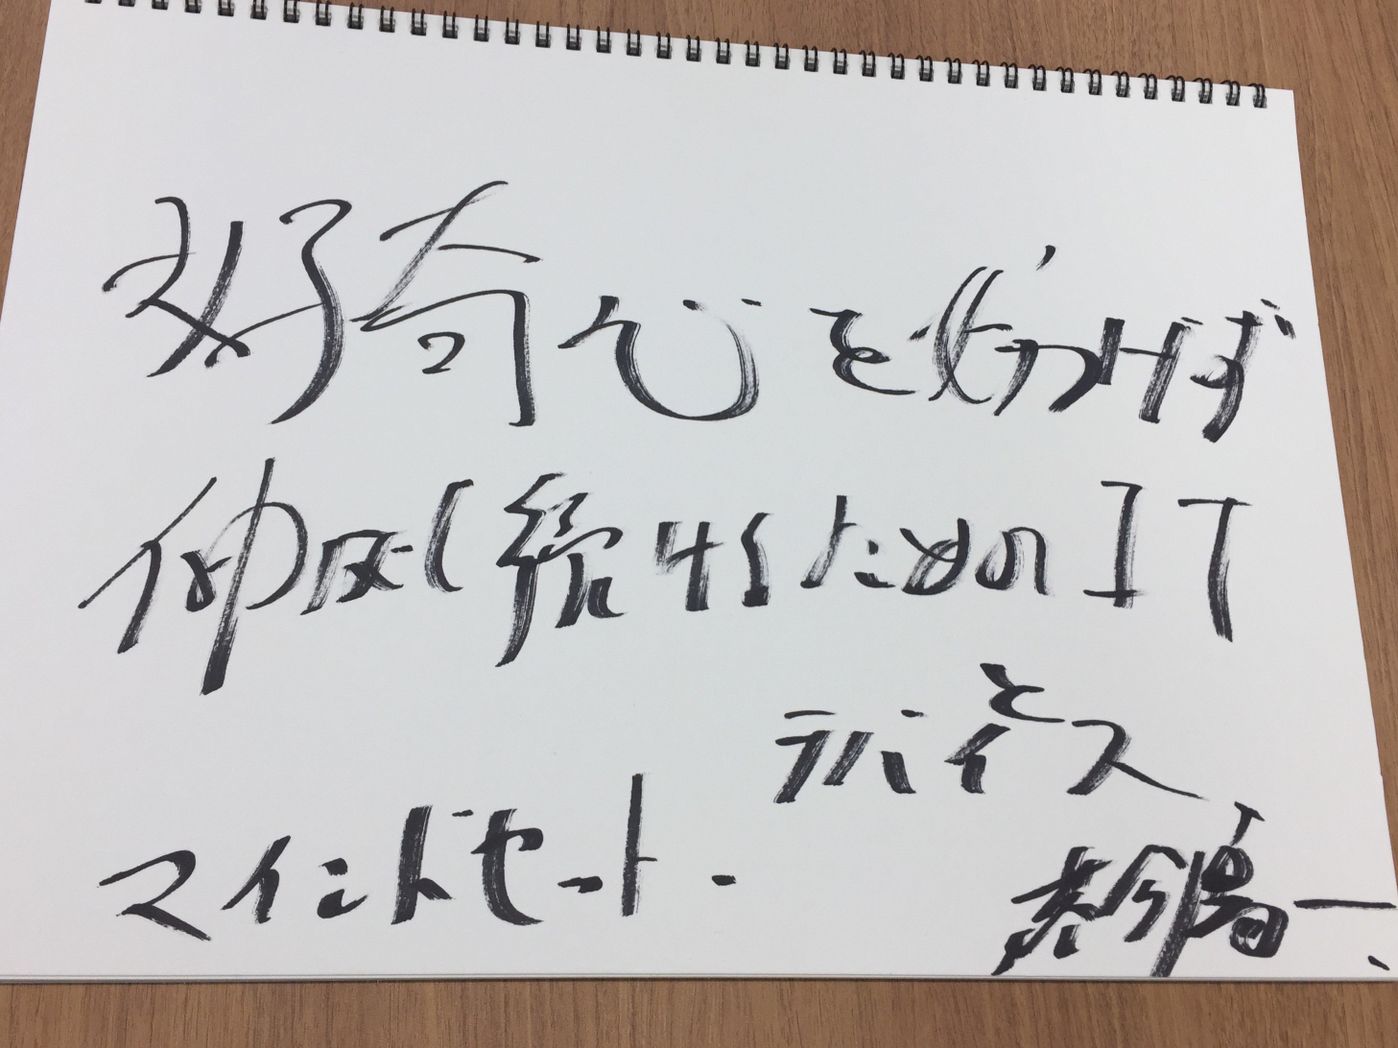 好奇心を妨げず
伸ばし続けるためのIT
デバイスと
マインドセット.